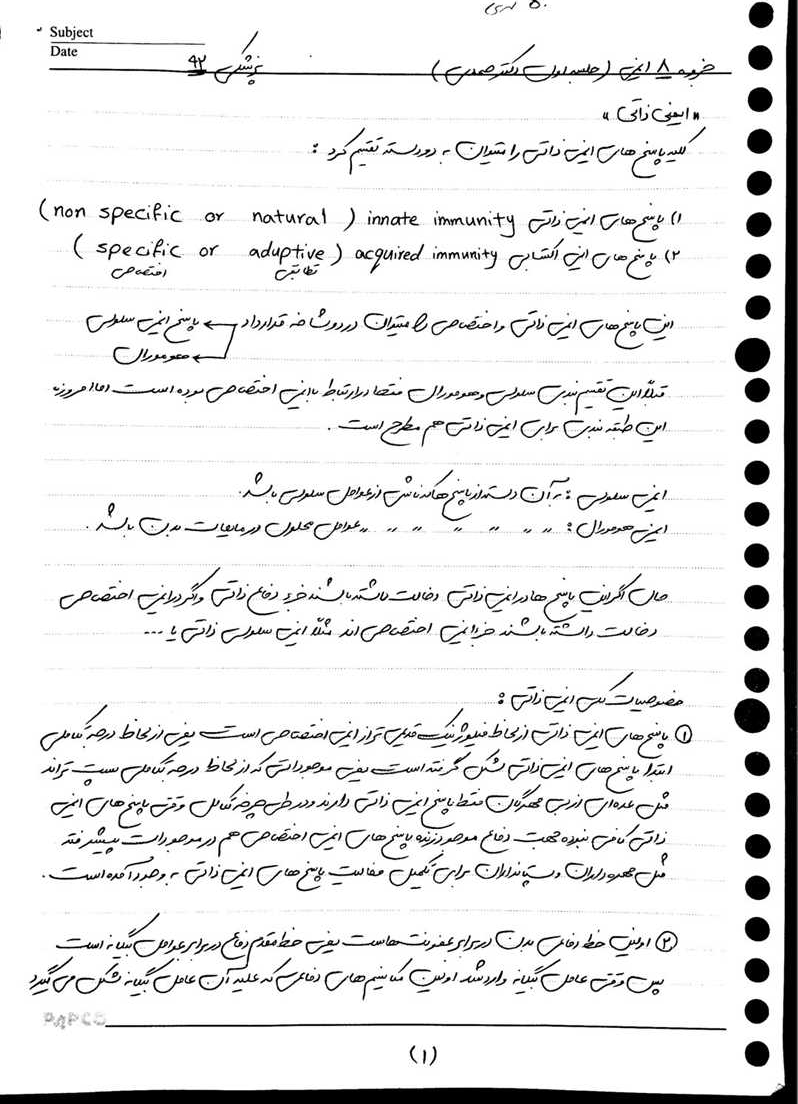 Subject
Date
جزوه ۸ ایمنی (جلسه اول دکتر صمدی) پزشکی ۹۲
"ایمنی ذاتی"
کلیه پاسخ های ایمنی ذاتی را میتوان به دو دسته تقسیم کرد :
۱) پاسخ های ایمنی ذاتی innate immunity ( non specific or natural )
۲) پاسخ های ایمنی اکتسابی acquired immunity ( specific or aduptive )
تطابقی اختصاصی
این پاسخ های ایمنی ذاتی و اختصاصی را میتوان در دو شاخه قرار داد ← پاسخ ایمنی سلولی
← هومورال
قبلاً این تقسیم بندی سلولی و هومورال فقط در ارتباط با ایمنی اختصاصی بوده است اما امروزه
این طبقه بندی برای ایمنی ذاتی هم مطرح است .
ایمنی سلولی : به آن دسته از پاسخ ها که ناشی از عوامل سلولی باشد.
ایمنی هومورال : ,, ,, ,, ,, ,, ,, عوامل محلول در مایعات بدن باشد .
حال اگر این پاسخ ها در ایمنی ذاتی دخالت داشته باشند جزء دفاع ذاتی و اگر در ایمنی اختصاصی
دخالت داشته باشند جزء ایمنی اختصاصی اند مثلاً ایمنی سلولی ذاتی یا ...
خصوصیات کلی ایمنی ذاتی :
① پاسخ های ایمنی ذاتی از لحاظ فیلوژنیک قدیمی تر از ایمنی اختصاصی است یعنی از لحاظ درجه تکاملی
ابتدا پاسخ های ایمنی ذاتی شکل گرفته است یعنی موجوداتی که از لحاظ درجه تکاملی پست تراند
مثل عده ای از بی مهرگان فقط پاسخ ایمنی ذاتی دارند و در طی چرخه تکامل وقتی پاسخ های ایمنی
ذاتی کافی نبوده جهت دفاع موجود زنده پاسخ های ایمنی اختصاصی هم در موجودات پیشرفته
مثل مهره داران و پستانداران برای تکمیل فعالیت پاسخ های ایمنی ذاتی به وجود آمده است .
② اولین خط دفاعی بدن در برابر عفونت هاست یعنی خط مقدم دفاع در برابر عوامل بیگانه است
پس وقتی عامل بیگانه وارد شد اولین مکانیسم های دفاعی که علیه آن عامل بیگانه شکل می گیرد
PAPCO
(۱)